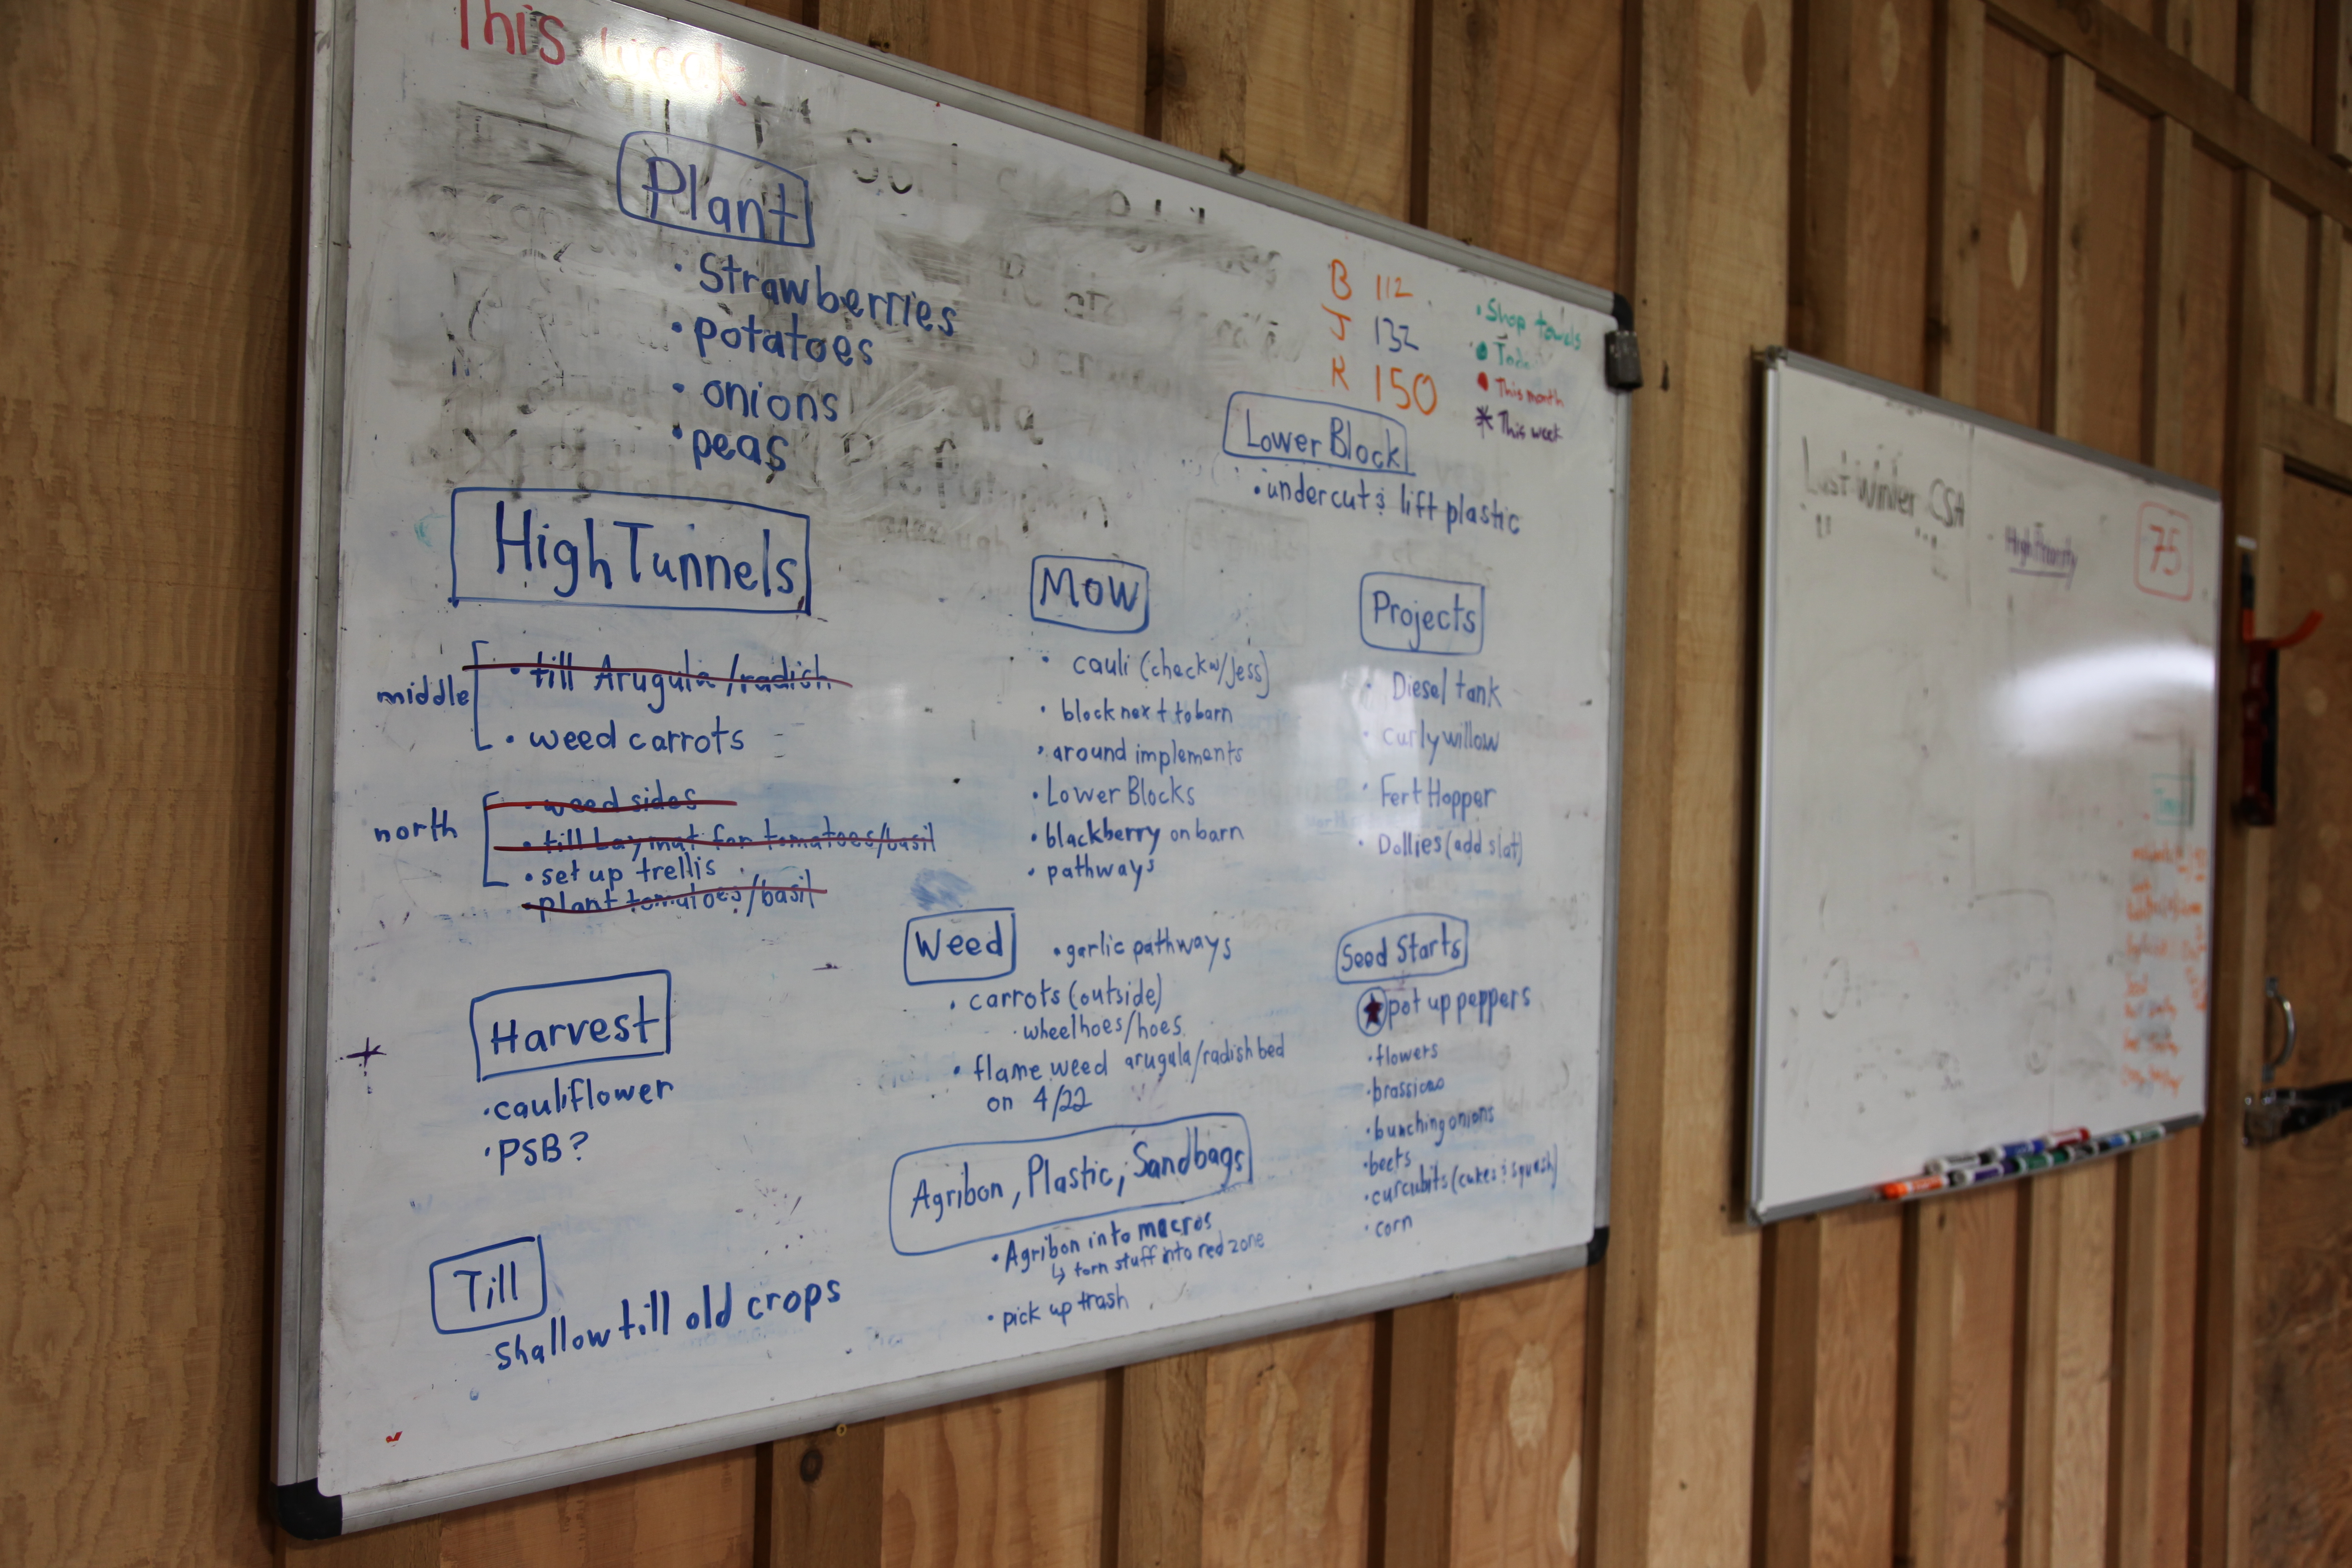 This week
Plant
• Strawberries
• potatoes
• onions
• peas
B 112
J 132
R 150
• Shop towels
• This month
* This week
Lower Block
• undercut & lift plastic
High Tunnels
middle
• till Arugula/radish
• weed carrots
north
• weed sides
• till for tomatoes/basil
• set up trellis
• plant tomatoes/basil
Mow
• cauli (check w/Jess)
• block next to barn
• around implements
• Lower Blocks
• blackberry on barn
• pathways
Projects
• Diesel tank
• curly willow
• Fert Hopper
• Dollies (add slat)
Harvest
• cauliflower
• PSB?
Weed
• garlic pathways
• carrots (outside)
• wheelhoes/hoes
• flame weed arugula/radish bed
on 4/22
Seed Starts
★ pot up peppers
• flowers
• bunching onions
• beets
• curcubits (cukes & squash)
• corn
Agribon, Plastic, Sandbags
• Agribon into macros
↳ torn stuff into red zone
• pick up trash
Till
shallow till old crops
Last Winter CSA
High Priority
75